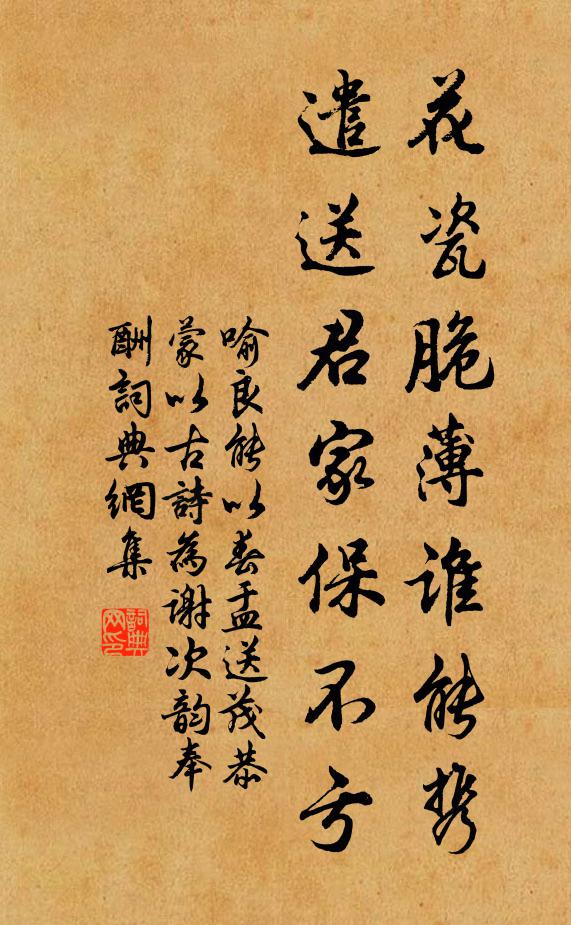 花瓷脆薄谁能携
遣送君家保不亏
喻良能以春盂送茂恭
蒙以古詩為谢次韵奉
酬詞典網集
詞典
网印